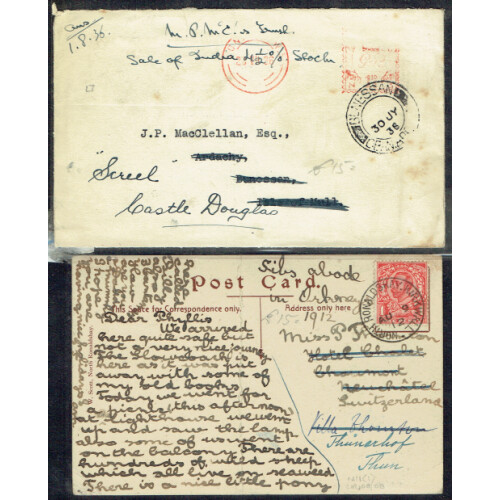 ans
1.8.36.
M.P. McC's Trust
Sale of India 4½% Stock
30 JY
36
J.P. MacClellan, Esq.,
Ardachy,
"Screel"
Bunessan,
Isle of Mull.
Castle Douglas
£15-
Post Card.
This Space for Correspondence only.
Address only here
Sibs abode
in Orkney
1912
£15-
Dear Phyllis
We arrived
here quite safe but
not a very nice journey
The
here as it was but
away with some of
my old books
Today we went for
a picnic this afternoon
at lighthouse we went
up and saw the lamp
also some of us went
on the balcony. There are
hundreds of wild sheep
which all live on seaweed
There is a nice little pony
Miss P
Hotel Chalet
Chaumont
Neuchâtel
Switzerland
Villa Thompson
Thunerhof
Thun